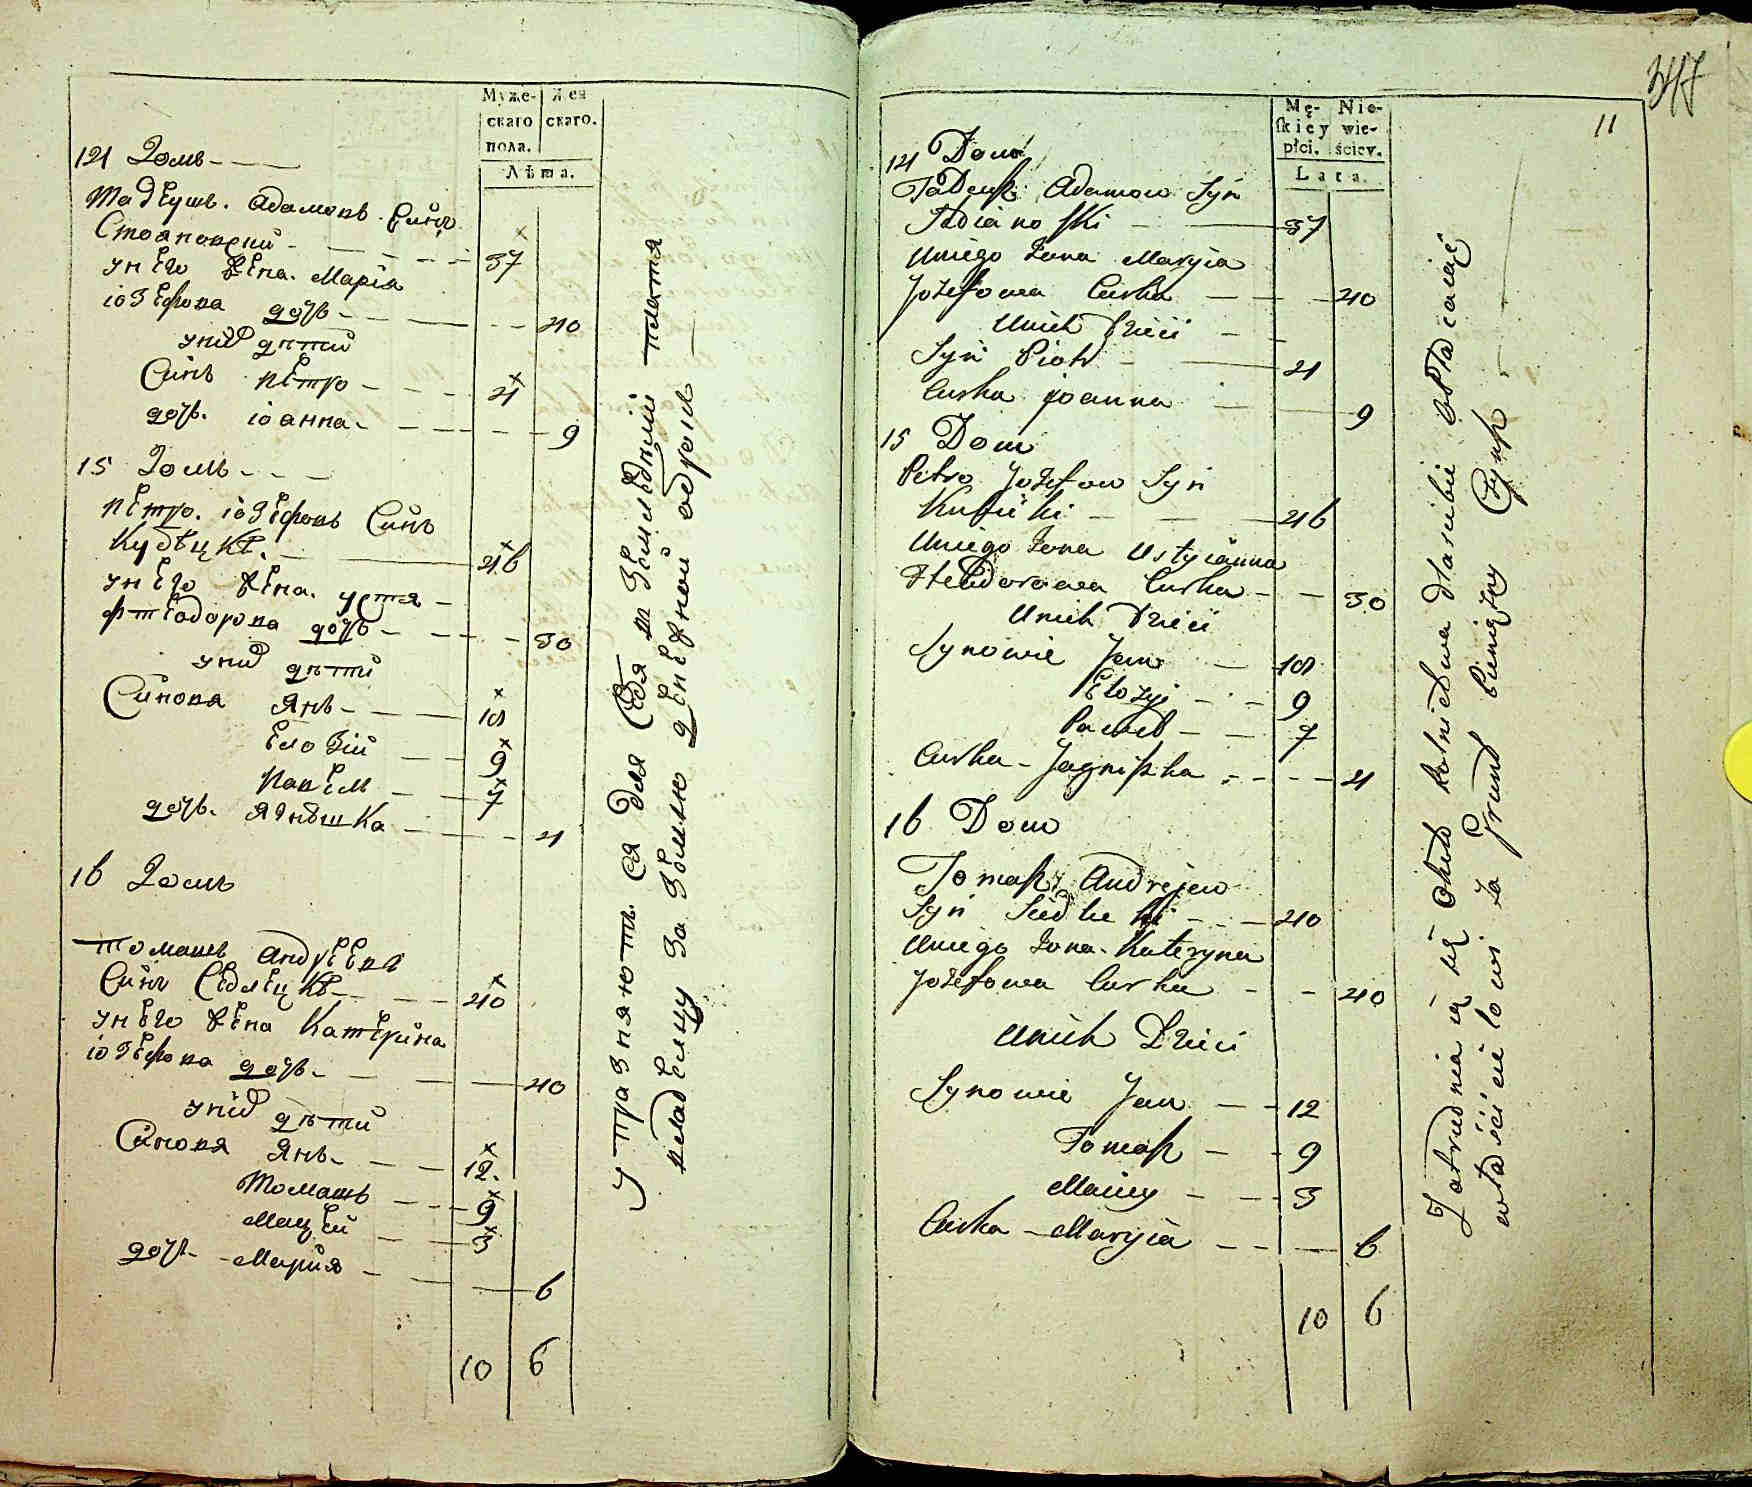 Муже- Жен
скаго скаго.
пола.
Лѣта.
121 Домъ
Тадеушъ. Адамовъ Синъ
Стояновский 37
у него жена. Марія
іозефова дочь 40
у них дѣти
Синъ Петро 21
дочь. іоанна. 9
15 Домъ
Петро. іозефовъ Синъ
46
у него жена. Устя
Фтеодорова дочь 30
у них дѣти
Синовя Янъ 18
Елозій 9
Павел 7
дочь. Ягнѣшка 4
16 Домъ
Томашъ Андреевъ
Синъ Седлецкі 40
у него жена Катерина
іозефова дочь 40
у них дѣти
Синовя Янъ 12.
Томашъ 9
Мацей 3
дочь Мария 6
10 6
упражняютъ. ся для себя земледѣліи платя
владелцу за землю денежной оброк
347
11
Mę- Nie-
skiey wie-
płci. ściey.
Lata.
121 Dom
Tadeusz Adamow Syn
Stoianoski 37
Uniego Żona Maryia
Jozefowa Curka 40
Unich Dzieci
Syn Piotr 21
Curka Joanna 9
15 Dom
Petro Jozefow Syn
46
Uniego Żona Ustyianna
Fteodorowa Curka 30
Unich Dzieci
Synowie Jan 18
Elozyi 9
Paweł 7
Curka Jagniszka 4
16 Dom
Tomasz Andrejew
Syn Siedlecki 40
Uniego Żona Kateryna
Jozefowa Curka 40
Unich Dzieci
Synowie Jan 12
Tomasz 9
Maciey 3
Curka Maryia 6
10 6
Zatrudniaią się około rolnictwa dla siebie opłacaiąc
właścicielowi za Grunt Pieniężny Czynsz